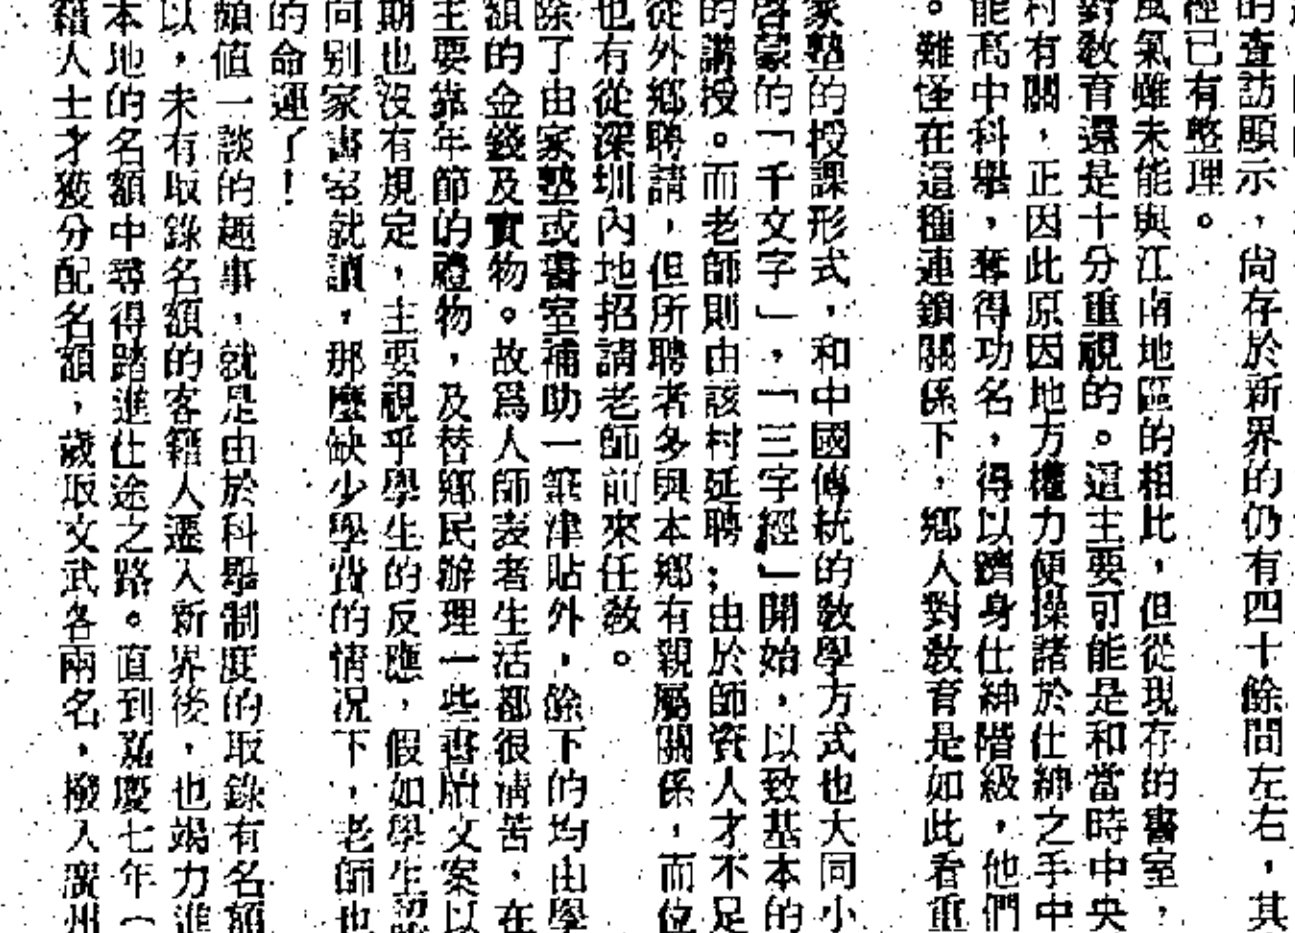 的查訪顯示，尚存於新界的仍有四十餘間左右，其
經已有整理。
風氣雖未能與江南地區的相比，但從現存的書室，
對教育還是十分重視的。這主要可能是和當時中央
村有關，正因此原因地方權力便操諸於仕紳之手中
能高中科舉，奪得功名，得以躋身仕紳階級，他們
。難怪在這種連鎖關係下，鄉人對敎育是如此看重
家塾的授課形式，和中國傳統的敎學方式也大同小
啓蒙的「千文字」，「三字經」開始，以致基本的
的講授。而老師則由該村延聘；由於師資人才不足
從外鄉聘請，但所聘者多與本鄉有親屬關係，而位
也有從深圳內地招請老師前來任敎。
除了由家塾或書室補助一筆津貼外，餘下的均由學
額的金錢及實物。故爲人師表者生活都很清苦，在
主要靠年節的禮物，及替鄉民辦理一些書牘文案以
期也沒有規定，主要視乎學生的反應，假如學生
向别家書室就讀，那麼缺少學費的情況下，老師也
的命運了！
頗值一談的趣事，就是由於科舉制度的取錄有名額
以，未有取錄名額的客籍人遷入新界後，也竭力進
本地的名額中尋得踏進仕途之路。直到嘉慶七年（
籍人士才獲分配名額，歲取文武各兩名，撥入廣州